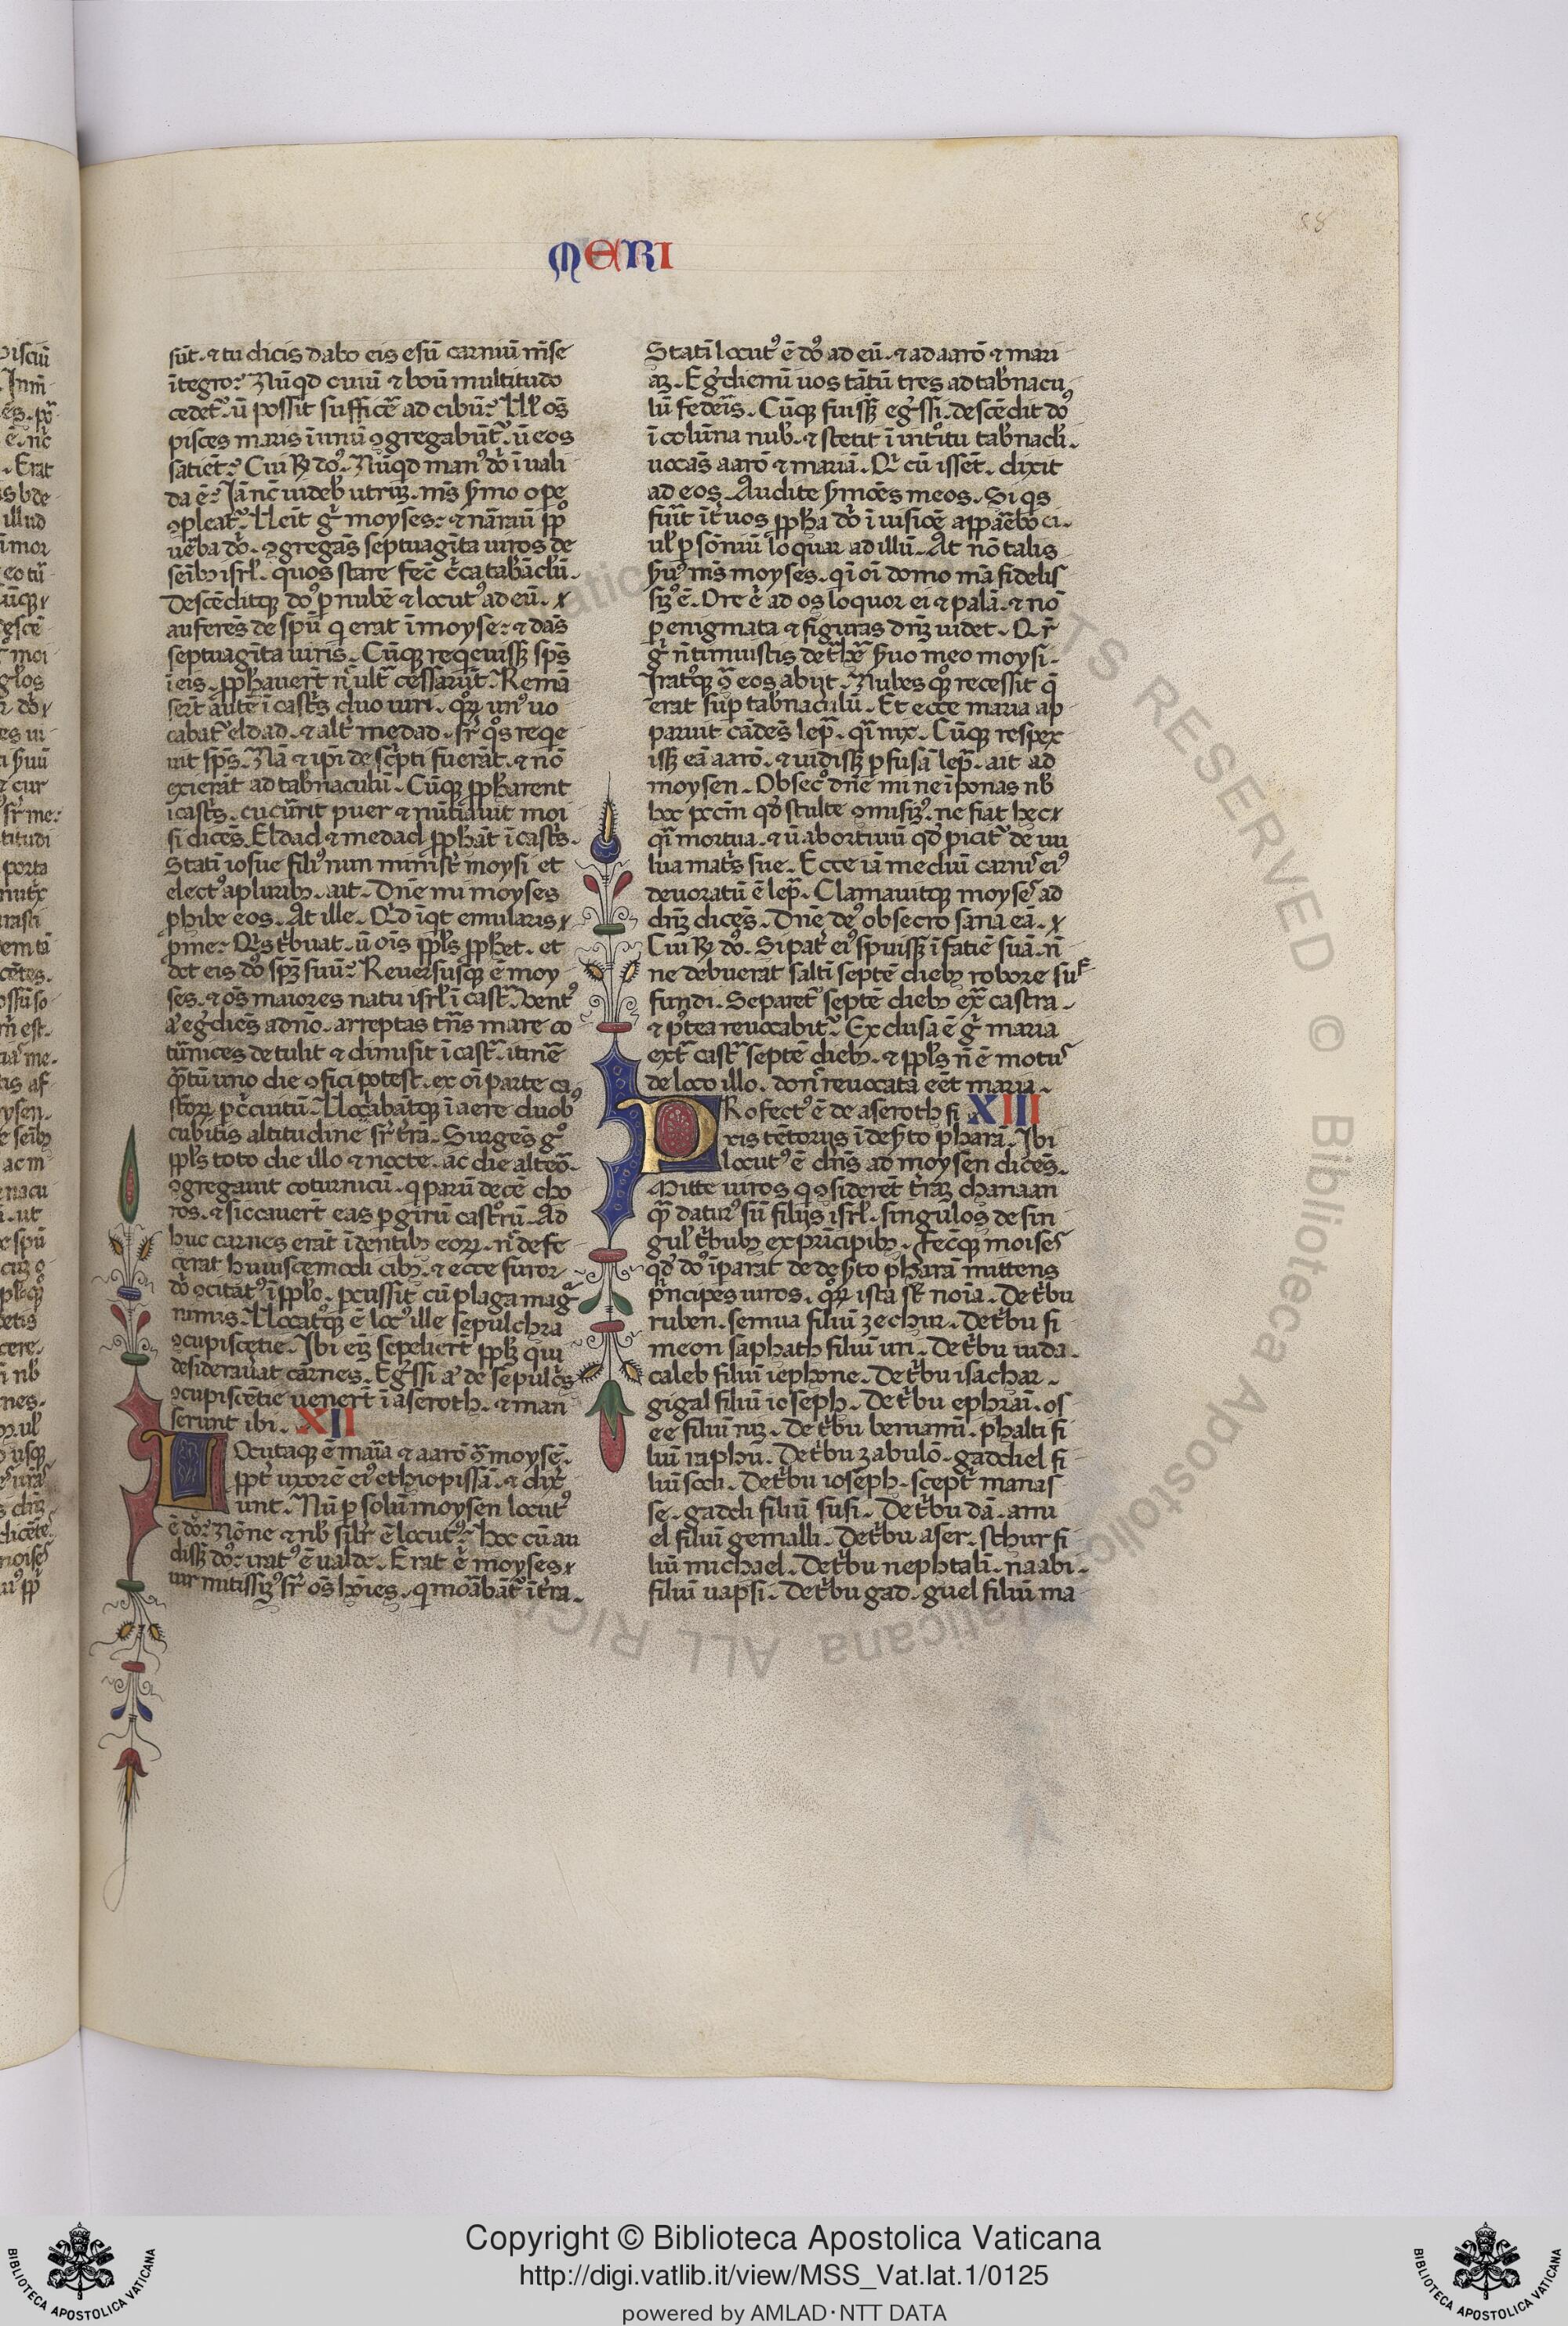 MERI
58
sūt. ⁊ tu dicis dabo eis esū carniū m̄se
ītegro? Nūqd ouiū ⁊ boū multitudo
cedet᷑. ū possit sufficē ad cibū? Ul᷑ os̄
pisces maris ī unū ꝯgregabūt᷑. ū eos
satiēt? Cui R̄ do᷒. Nūqd man᷒ do᷑ ī uali
da ē? Iā nc̄ uideb᷑ utrūz. ms̄ s̄mo ope
ꝯpleat᷑. Ueīt g᷑ moyses: ⁊ nārau᷑ ppl᷑o
uēba do᷑. ꝯgregās septuagīta uiros de
seīb᷒ isrl᷑. quos stare fec̄ c᷑ca tab᷑nāclū.
Descēditqꝫ do᷒ ꝑ nubē ⁊ locut᷒ ad eū.
auferēs de spū q erat ī moyse: ⁊ dās
septuagīta uiris. Cūqꝫ reqeuissꝫ sps̄
ī eis. ꝓphauer᷑t n᷑ ult᷑ cessarūt. Remā
ser᷑t autē ī cast᷑s duo uiri. qoꝝ un᷒ uo
cabat᷑ eldad. ⁊ alt᷑ medad. sr᷑ qo᷑s reqe
uit sps̄. Nā ⁊ ip̄i desc᷑pti fuerāt. ⁊ nō
exierāt ad tab᷑naculū. Cūqꝫ ꝓpharent
ī cast᷑s. cucūrit puer ⁊ nūtiauit moi
si dicēs. Eldad ⁊ medad ꝓphāt ī cast᷑s.
Statī iosue fili᷒ nun minist᷑ moysi et
elect᷒ a plurib᷒. ait. Dn̄e mi moyses
ꝓhibe eos. At ille. Qd īqt emularis
ꝓ me? Qi᷑s t᷑buat. ū oīs ppl᷑s ꝓphet. et
det eis do᷒ spm̄ suū? Reuersusqꝫ ē moy
ses. ⁊ os̄ maiores natu isrl᷑ ī cast᷑. Uent᷒
a᷑ eg᷑diēs a dn̄o. arreptas tn̄s mare co
tūnices detulit ⁊ dimisit ī cast᷑. itinē
q᷑tū uno die ꝯfici potest. ex oī parte ca
stroꝝ ꝑ c᷑cuitū. Uocabātqꝫ ī aere duob᷒
cubitis altitudine sr᷑ t᷑ra. Surgēs g᷑o
ppl᷑s toto die illo ⁊ nocte. ac die alteo᷑.
ꝯgregauit coturnicū. q parū decē cho
ros. ⁊ siccauer᷑t eas ꝑ girū castrorū. Ad
huc carnes erāt ī dentib᷒ eoꝝ. n᷑ defe
cerat huiuscemodi cib᷒. ⁊ ecce furor
do᷑ ꝯcitat᷒ ī ppl᷑o. ꝑcussit cū plaga mag᷑
nimis. Uocat᷒qꝫ ē loc᷒ ille sepulchra
ꝯcupiscētie. Ibi eīz sepelier᷑t ppl᷑m qui
desiderauat carnes. Eg᷑ssi a᷑ de sepulc᷑s
ꝯcupiscētie uener᷑t ī aseroth. ⁊ man
serunt ibi. XII
Locutaqꝫ ē maria ⁊ aarō ꝯ᷑ moysē.
ppt᷑ uxorē ei᷒ ethiopissā. ⁊ dix᷑
unt. Nū ꝑ solū moysen locut᷒
ē do᷒? Nōne ⁊ nb᷑ silr᷑ ē locut᷒? Hoc cū au
dissꝫ do᷒: irat᷒ ē ualde. Erat ē moyses
uir mitissim᷒ sr᷑ os̄ hoīes. q morābāt᷑ ī t᷑ra.
Statī locut᷒ ē do᷒ ad eū. ⁊ ad aarō ⁊ mari
aꝫ. Eg᷑diemī uos tātū tres ad tab᷑nacu
lū feder᷑is. Cūqꝫ fuissꝫ eg᷑ssi. descēdit do᷒
ī coluna nub᷑. ⁊ stetit ī int᷑oitu tab᷑nacli.
uocās aarō ⁊ mariā. Qi᷑ cū issēt. dixit
ad eos. Audite s᷑mōes meos. Si qs
fuīt īt᷑ uos ꝓpha do᷑ ī uisiōe apparebo ei.
ul᷑ ꝑ sōniū loquar ad illū. At nō talis
s᷑uu᷒ ms̄ moyses. qi ī oī domo mā fidelis
sim᷒ ē. Ore ē ad os loquor ei ⁊ palā. ⁊ nō
ꝑ enigmata ⁊ figuras dn̄m uidet. Qr᷑
g᷑ n̄ timuistis det᷑he᷑ s᷑uo meo moysi.
Irat᷒qꝫ ꝯ᷑ eos abijt. Nubes qoꝫ recessit q̄
erat sup̄ tab᷑naculū. Et ecce maria ap
paruit cādēs lep᷑. q᷑i nix. Cūqꝫ respex
issꝫ eā aarō. ⁊ uidissꝫ ꝑfusā lep᷑. ait ad
moysen. Obsec᷑o dn̄e mi ne īponas nb᷑
hoc pccm̄ qd᷑ stulte ꝯmisim᷒. ne fiat hec
q᷑i mortua. ⁊ ū abortiuū qd᷑ ꝓicit᷑ de uu
lua mat᷑s sue. Ecce iā mediū carnis ei᷒
deuoratū ē lep᷑. Clamauitqꝫ moyses ad
dn̄m dicēs. Dn̄e de᷒ obsecro sana eā.
Cui R̄ do᷒. Si pat᷑ ei᷒ spuissꝫ ī fatiē suā. n̄
ne debuerat saltī septē dieb᷒ robore suf
fundi. Separet᷑ septē dieb᷒ ex᷑ castra.
⁊ p᷑tea reuocabit᷑. Exclusa ē g᷑ maria
ext᷑ cast᷑ septē dieb᷒. ⁊ ppl᷑s n̄ ē motus
de loco illo. donc᷑ reuocata eēt maria.
Profect᷒ ē de aseroth fi XIII
xis tētorijs ī des᷑to pharā. Ibi
locut᷒ ē dn̄s ad moysen dicēs.
Mitte uiros q ꝯsideret t᷑raꝫ chanaan
q᷑ datur᷒ sū filijs isrl᷑. singulos de sin
gul᷑ t᷑bub᷒ ex prīcipib᷒. Fecitqꝫ moises
qd᷑ do᷒ īparat᷑ de des᷑to pharā mittens
p᷑ncipes uiros. qoꝝ ista st᷑ noīa. De t᷑bu
ruben. semua filiū zechur. De t᷑bu si
meon saphath filiū uri. De t᷑bu iuda.
caleb filiū iephone. De t᷑bu isachar.
gigal filiū ioseph. De t᷑bu ephraī. os
ee filiū nū. De t᷑bu beniamī. phalti fi
liū raphū. De t᷑bu zabulō. gaddiel fi
liū sodi. De t᷑bu ioseph. scept᷑ manas
se. gaddi filiū susi. De t᷑bu dā. ami
el filiū gemalli. De t᷑bu aser. sthur fi
liū michael. De t᷑bu nephtalī. naabi.
filiū uapsi. De t᷑bu gad. guel filiū ma
Copyright © Biblioteca Apostolica Vaticana
http://digi.vatlib.it/view/MSS_Vat.lat.1/0125
powered by AMLAD·NTT DATA
BIBLIOTECA APOSTOLICA VATICANA
BIBLIOTECA APOSTOLICA VATICANA